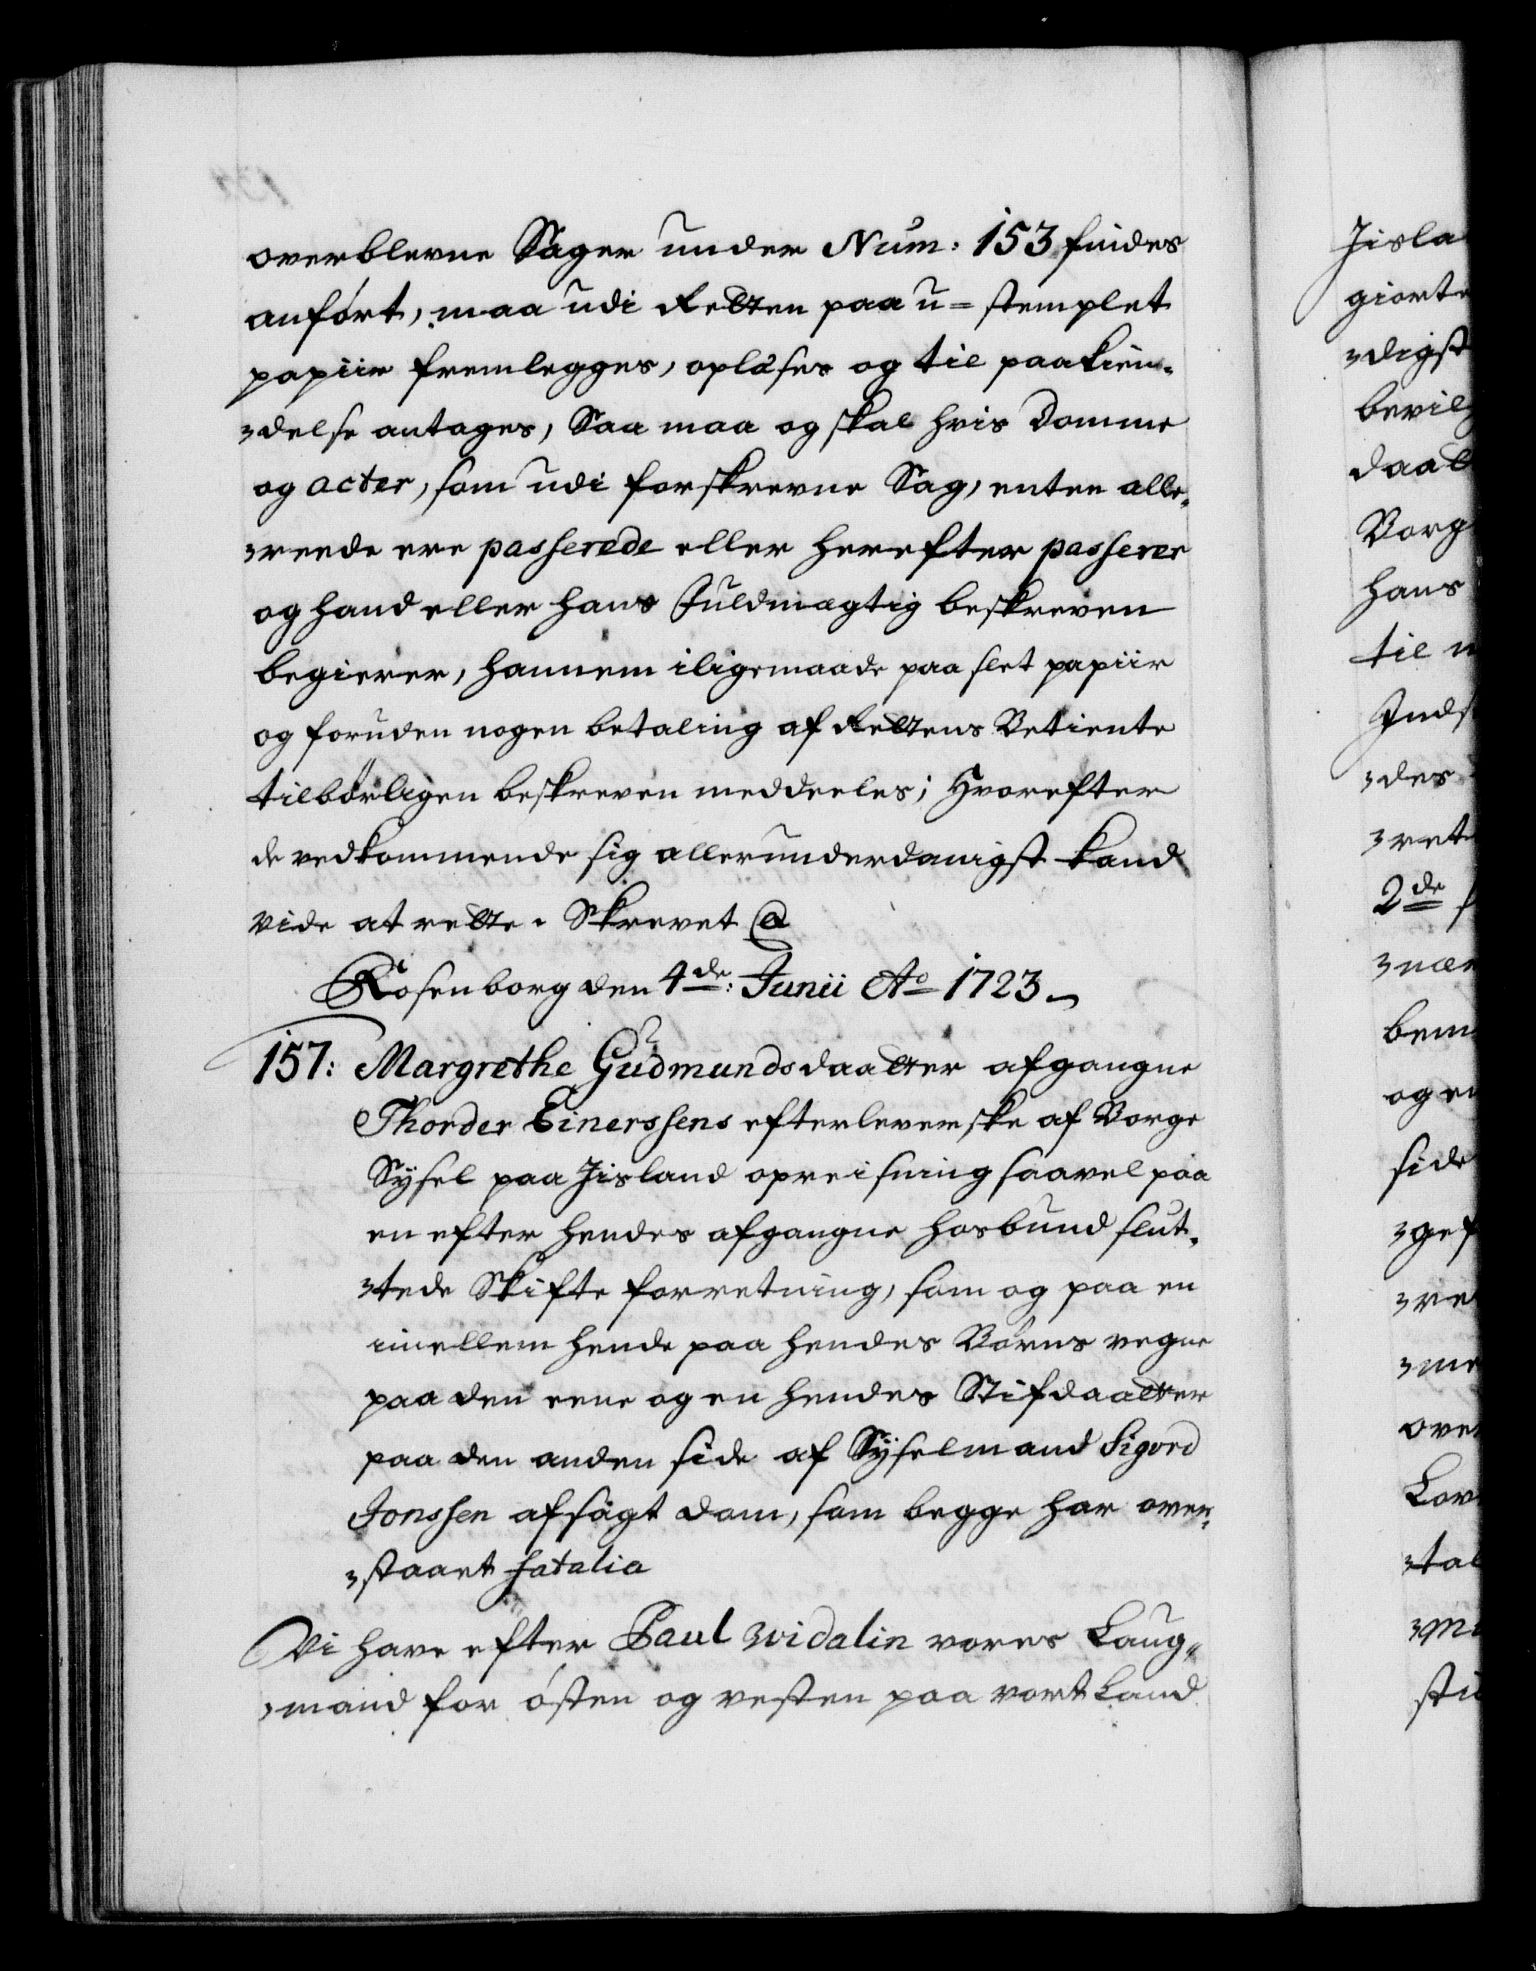 overblevne Sager under Num: 153 findes
anført, maa udi Retten paa u=stemplet
papiir fremlegges, oplæses og til paakien-
delse antages, Saa maa og skal hvis Domme
og acter, som udi forskrevne Sag, enten alle-
reede ere passerede eller herefter passerer
og hand eller hans Fuldmægtig beskreven
begierer, hannem iligemaade paa slet papiir
og foruden nogen betaling af Rettens Betiente
tilbørligen beskreven meddeeles; Hvorefter
de vedkommende sig allerunderdanigst kand
vide at rette. Skrevet @
Rosenborg den 4de: Junii Ao 1723
157: Margrethe Gudmundsdaatter afgangne
Thorder Einerssens efterleverske af Borge
Sysel paa Jisland opreisning saavel paa
en efter hendes afgangne hosbund slut-
tede Skifte forretning, som og paa en
imellem hende paa hendes Børns vegne
paa den eene og en hendes Stifdaatter
paa den anden side af Sysselmand Sigord
Jonssen afsagt dom, som begge har over-
staaet fatalia
Vi have efter Paul Widalin vores Laug-
mand for østen og vesten paa vort Land
Jisla
giorte
digst
bevilg
daatt
Borg
hans
til
Inds
des
ret
2de
nær
bem
og en
side
gef
re
me
over
Lov
tal